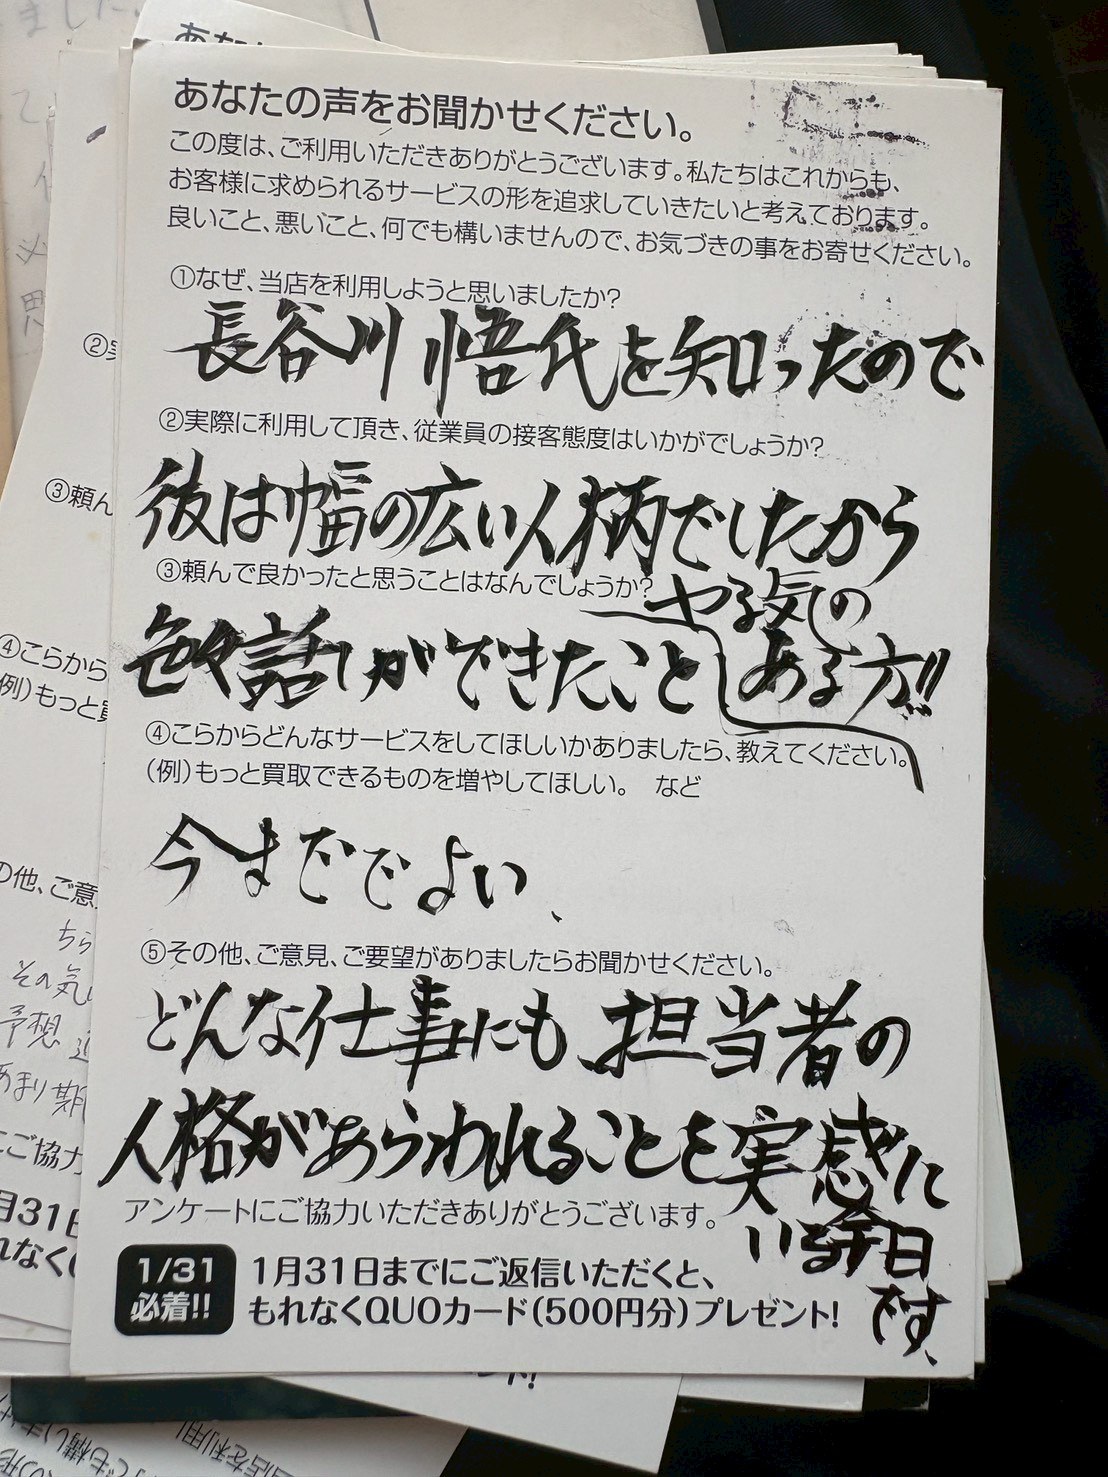 あなたの声をお聞かせください。
この度は、ご利用いただきありがとうございます。私たちはこれからも、
お客様に求められるサービスの形を追求していきたいと考えております。
良いこと、悪いこと、何でも構いませんので、お気づきの事をお寄せください。
①なぜ、当店を利用しようと思いましたか?
長谷川悟氏を知ったので
②実際に利用して頂き、従業員の接客態度はいかがでしょうか?
彼は幅の広い人柄でしたから
③頼んで良かったと思うことはなんでしょうか?
色々話しができたこと
やる気の
ある方!!
④こらからどんなサービスをしてほしいかありましたら、教えてください。
(例)もっと買取できるものを増やしてほしい。 など
今まででよい、
⑤その他、ご意見、ご要望がありましたらお聞かせください。
どんな仕事にも担当者の
人格があらわれることを実感に
いる今日
です、
アンケートにご協力いただきありがとうございます。
1/31
必着!!
1月31日までにご返信いただくと、
もれなくQUOカード(500円分)プレゼント!
②実
③頼ん
④こらから
(例)もっと買
の他、ご意
ちら
その気
予想
あまり期
にご協力
月31日
れなくQ